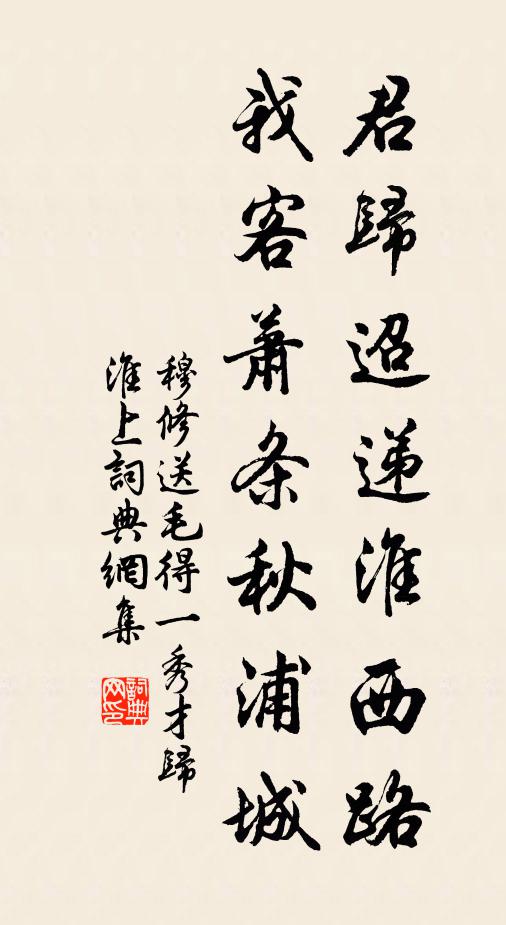 君歸迢递淮西路
我客蕭条秋浦城
穆修送毛得一秀才歸
淮上詞典網集
詞典
网印